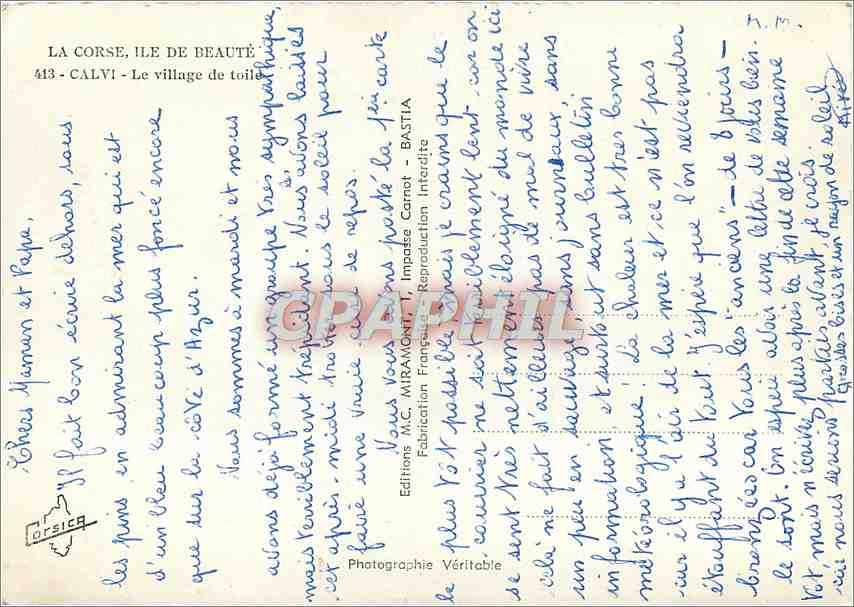 LA CORSE, ILE DE BEAUTÉ
413 - CALVI - Le village de toile
Chers Maman et Papa,
Il fait bon écrire dehors, sous
les pins en admirant la mer qui est
d'un bleu beaucoup plus foncé encore
que sur la côte d'Azur.
Nous sommes à mardi et nous
avons déjà formé un groupe très sympathique,
mais terriblement trépidant. Nous avons laissés
cet après-midi trotter sous le soleil pour
faire une vraie cure de repos.
Nous vous avons posté la 1ère carte
le plus tôt possible mais je crains que le
courrier ne soit terriblement lent car on
se sent très nettement éloigné du monde ici
celà ne fait d'ailleurs pas de mal de vivre
un peu en sauvage, sans journaux sans
information et surtout sans bulletin
météorologique! La chaleur est très bonne
car il y a l'air de la mer et ce n'est pas
étouffant du tout. J'espère que l'on reviendra
bronzés car tous les "anciens" - de 8 jours -
le sont. On espère avoir une lettre de vous bien
tôt, mais n'écrivez plus après la fin de cette semaine
car nous serions partis avant, je crois.
Grosses bises et un rayon de soleil
J. B.
Editions M.C. MIRAMONT, 1, Impasse Carnot - BASTIA
Fabrication Française - Reproduction Interdite
Photographie Véritable
Corsica
CPAPHIL